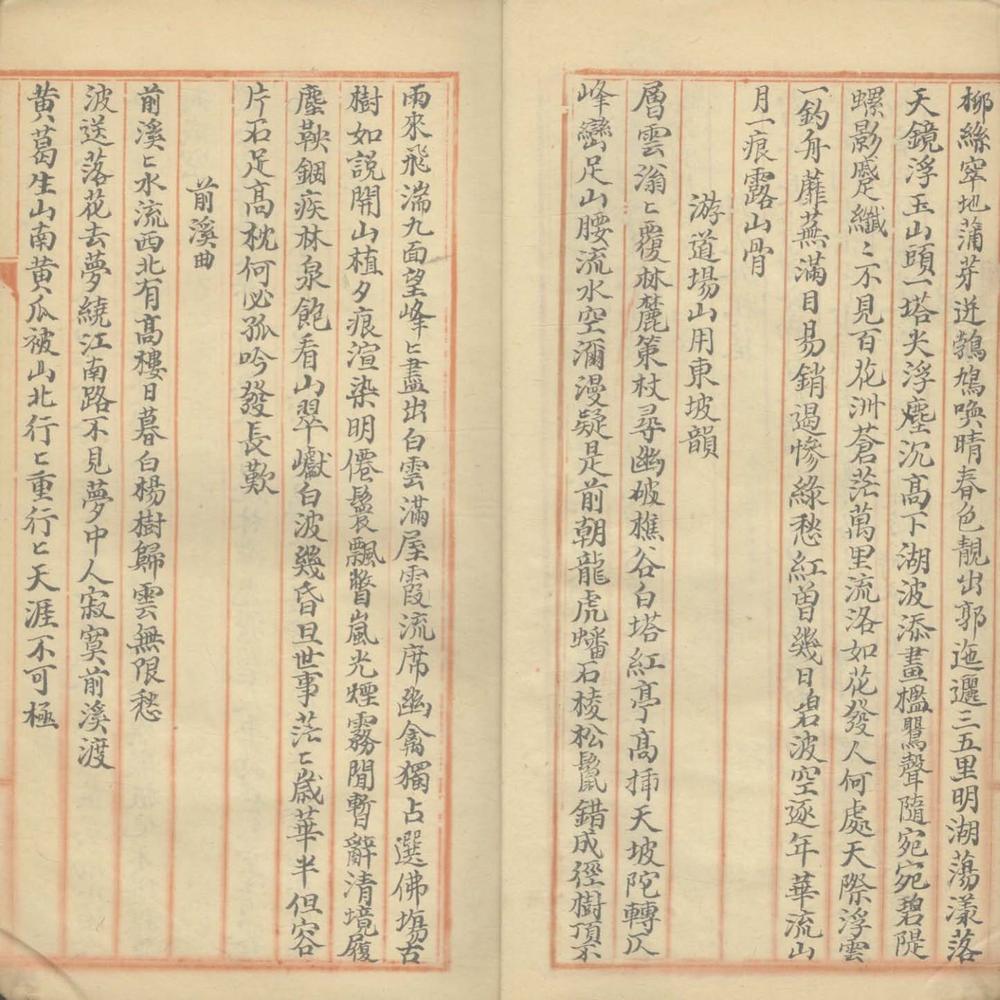 柳絲窣地蒲芽迸鵓鳩喚晴春色靚出郭迤邐三五里明湖蕩漾落
天鏡浮玉山頭一塔尖浮塵沉高下湖波添畫檻鷖聲隨宛宛碧隄
螺影蹙纖〻不見百花洲蒼茫萬里流洛如花發人何處天際浮雲
一釣舟蘼蕪滿目易銷遏慘綠愁紅曾幾日碧波空逐年華流山
月一痕露山骨
游道場山用東坡韻
層雲滃〻覆林麓策杖尋幽破樵谷白塔紅亭高揷天坡陀轉仄
峰巒足山腰流水空瀰漫疑是前朝龍虎蟠石棱松鬣錯成徑樹頂不
雨來飛湍九面望峰〻盡出白雲滿屋霞流席幽禽獨占選佛塲古
樹如説開山植夕痕渲染明僊鬟飄瞥嵐光煙霧間暫辭清境履
塵鞅錮疾林泉飽看山翠巘白波幾昏旦世事茫〻歲華半但容
片石足高枕何必孤吟發長歎
前溪曲
前溪〻水流西北有高樓日暮白楊樹歸雲無限愁
波送落花去夢繞江南路不見夢中人寂寞前溪渡
黄葛生山南黄瓜被山北行〻重行〻天涯不可極